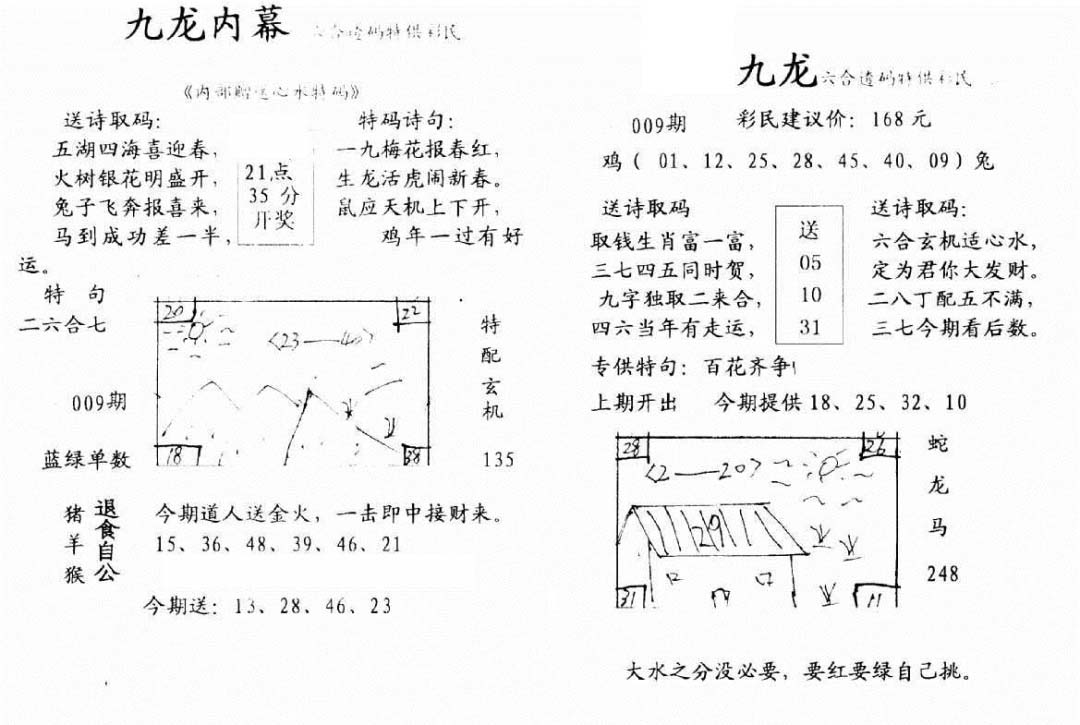 九龙内幕 六合透码特供彩民
《内部赠送心水特码》
送诗取码：
五湖四海喜迎春，
火树银花明盛开，
兔子飞奔报喜来，
马到成功差一半，
21点
35 分
开奖
特码诗句：
一九梅花报春红，
生龙活虎闹新春。
鼠应天机上下开，
鸡年一过有好
运。
特 句
二六合七
009期
蓝绿单数
20
22
（23——40）
18
38
特
配
玄
机
135
猪
羊
猴
退
食
自
公
今期道人送金火，一击即中接财来。
15、36、48、39、46、21
今期送：13、28、46、23
九龙六合透码特供彩民
009期 彩民建议价：168 元
鸡（ 01、12、25、28、45、40、09）兔
送诗取码
取钱生肖富一富，
三七四五同时贺，
九字独取二来合，
四六当年有走运，
送
05
10
31
送诗取码：
六合玄机适心水，
定为君你大发财。
二八丁配五不满，
三七今期看后数。
专供特句：百花齐争
上期开出 今期提供 18、25、32、10
28
26
（2——20）
29
31
11
蛇
龙
马
248
大水之分没必要，要红要绿自己挑。